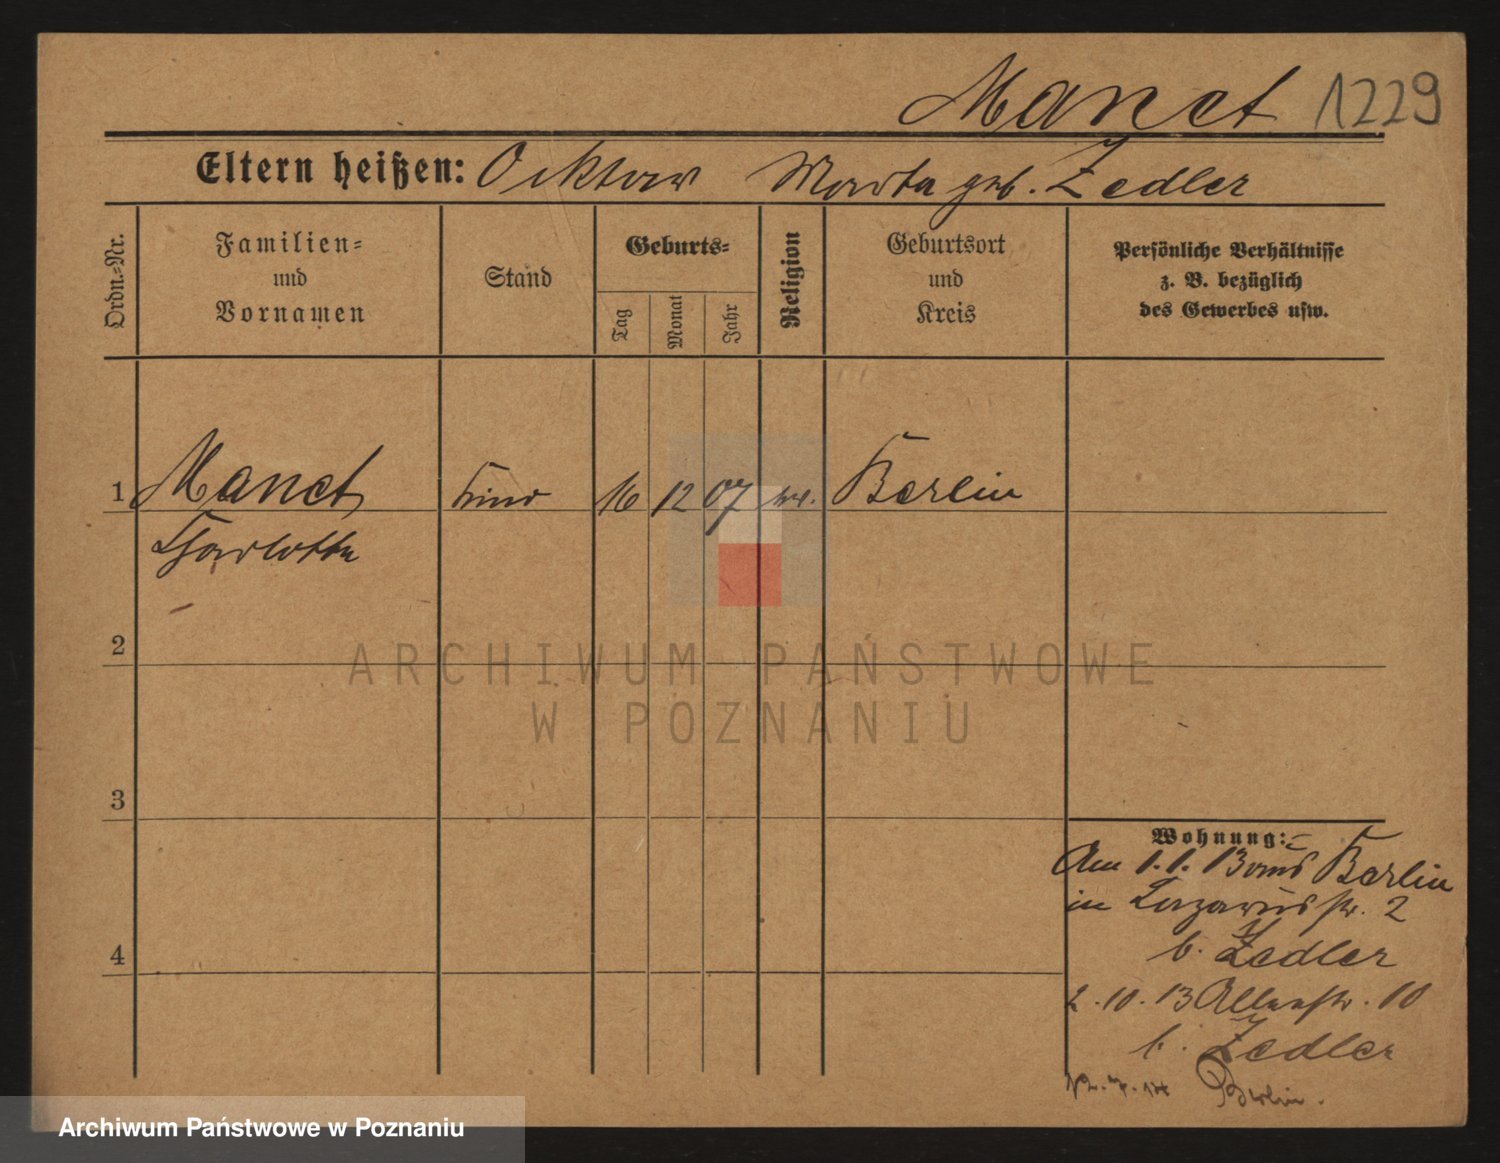 Manct 1229
Eltern heißen: Ocktav Marta geb. Zedler
Ordn.-Nr.
Familien-
und
Vornamen
Stand
Geburts-
Tag
Monat
Jahr
Religion
Geburtsort
und
Kreis
Persönliche Verhältnisse
z. B. bezüglich
des Gewerbes usw.
1 Manct Kind 16 12 07 Berlin
Charlotte
2
3
4
Wohnung:
Am 1.1.13 aus Berlin
in Lazarusstr. 2
b. Zedler
2.10.13 Allee str. 10
b. Zedler
Berlin.
ARCHIWUM PAŃSTWOWE
W POZNANIU
Archiwum Państwowe w Poznaniu